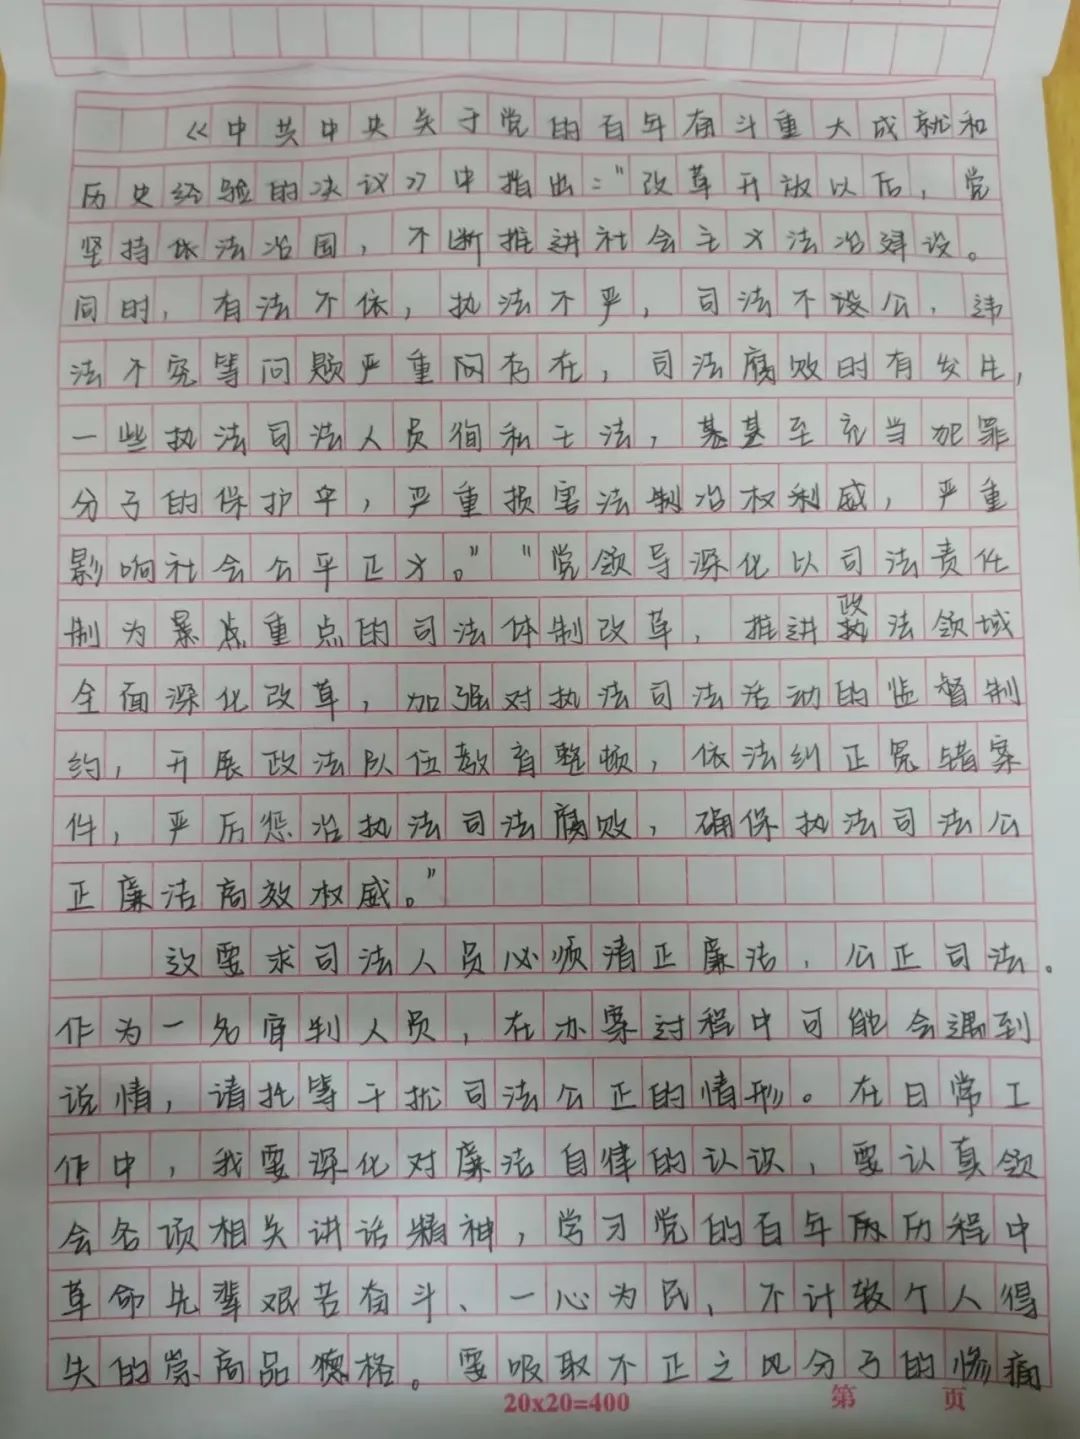 《中共中央关于党的百年奋斗重大成就和
历史经验的决议》中指出："改革开放以后，党
坚持依法治国，不断推进社会主义法治建设。
同时，有法不依，执法不严，司法不公，违
法不究等问题严重存在，司法腐败时有发生，
一些执法司法人员徇私干法，甚至充当犯罪
分子的保护伞，严重损害法治权威，严重
影响社会公平正义。""党领导深化以司法责任
制为重点的司法体制改革，推进政法领域
全面深化改革，加强对执法司法活动的监督制
约，开展政法队伍教育整顿，依法纠正冤错案
件，严厉惩治执法司法腐败，确保执法司法公
正廉洁高效权威。"
这要求司法人员必须清正廉洁，公正司法。
作为一名审判人员，在办案过程中可能会遇到
说情，请托等干扰司法公正的情形。在日常工
作中，我要深化对廉洁自律的认识，要认真领
会各项相关讲话精神，学习党的百年历程中
革命先辈艰苦奋斗、一心为民，不计较个人得
失的崇高品德格。要吸取不正之风分子的惨痛
20x20=400 第 页